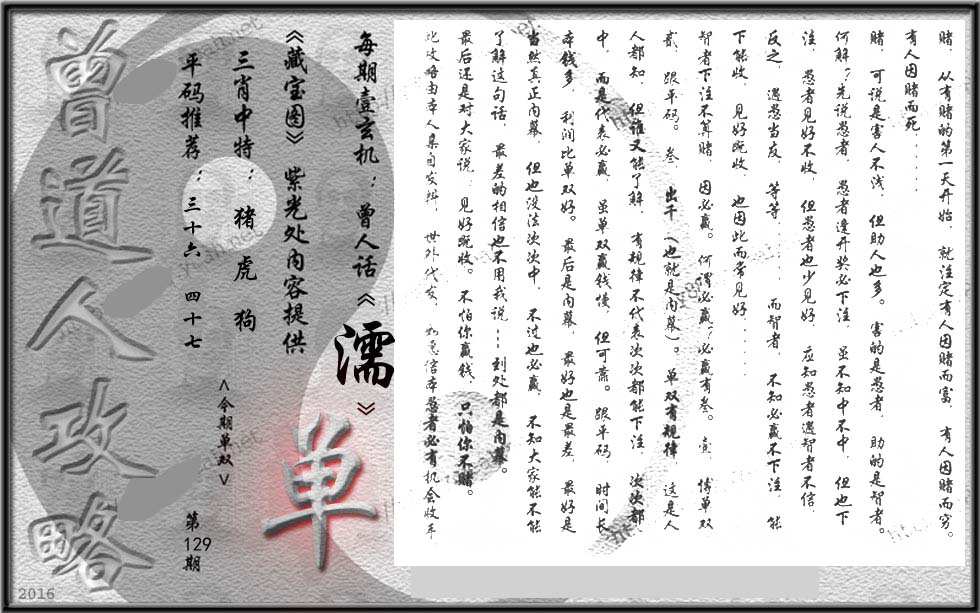 赌，从有赌的第一天开始，就注定有人因赌而富，有人因赌而穷。
有人因赌而死......
赌，可说是害人不浅，但助人也多。害的是愚者，助的是智者。
何解？先说愚者，愚者逢开奖必下注，虽不知中不中，但也下
注，愚者见好不收，但愚者也少见好，应知愚者遇智者不信，
反之，遇愚当友，等等......而智者，不知必赢不下注，能
下能收，见好既收，也因此而常见好......
智者下注不算赌，因必赢。何谓必赢？必赢有叁。壹，博单双，
贰，跟平码。叁，出千（也就是内幕）。单双有规律，这是人
人都知，但谁又能了解，有规律不代表次次都能下注，次次都
中，而是代表必赢，虽单双赢钱慢，但可靠。跟平码，时间长
本钱多，利润比单双好。最后是内幕，最好也是最差，最好是
当然真正内幕，但也没法次次中，不过也必赢，不知大家能不能
了解这句话，最差的相信也不用我说...到处都是内幕。
最后还是对大家说，见好既收。不怕你赢钱，只怕你不赌。
此攻略由本人集自发辑，世外代友，如愚信本愚者必有机会收车
每期壹玄机：曾人话《濡》
《藏宝图》紫光处内容提供
三肖中特：猪 虎 狗
平码推荐：三十六 四十七
<今期单双>
单
第129期
曾道人攻略
2016